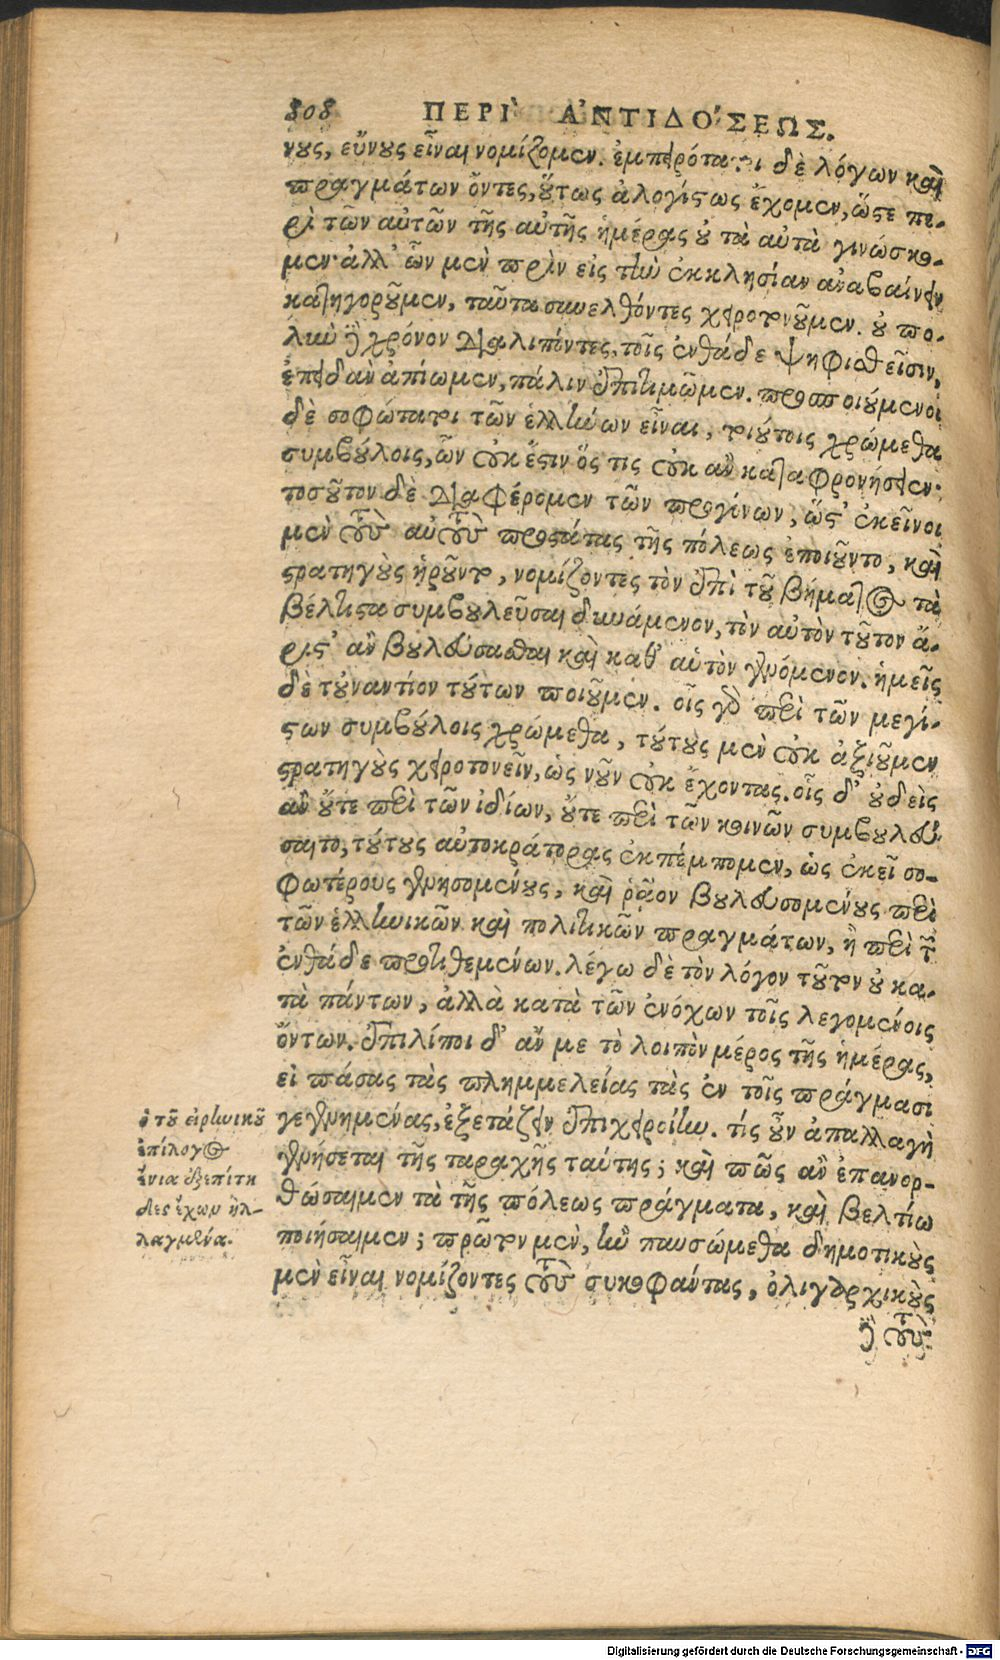 308 ΠΕΡΙ ἈΝΤΙΔΟ´ΣΕΩΣ.
νους, εὔνους εἶναι νομίζομεν. ἐμπειρότατοι δὲ λόγων καὶ
πραγμάτων ὄντες, οὕτως ἀλογίστως ἔχομεν, ὥστε πε-
ρὶ τῶν αὐτῶν τῆς αὐτῆς ἡμέρας οὐ τὰ αὐτὰ γινώσκο-
μεν· ἀλλ' ὧν μὲν πρὶν εἰς τὴν ἐκκλησίαν ἀναβαίνειν
κατηγοροῦμεν, ταῦτα συνελθόντες χειροτονοῦμεν. οὐ πο-
λὺν δὲ χρόνον διαλιπόντες, τοῖς ἐνθάδε ψηφισθεῖσιν,
ἐπειδὰν ἀπίωμεν, πάλιν ἐπιτιμῶμεν. προσποιούμενοι
δὲ σοφώτατοι τῶν ἑλλήνων εἶναι, τοιούτοις χρώμεθα
συμβούλοις, ὧν οὐκ ἔστιν ὅς τις οὐκ ἂν καταφρονήσειεν·
τοσοῦτον δὲ διαφέρομεν τῶν προγόνων, ὥστ' ἐκεῖνοι
μὲν τοὺς αὐτοὺς προστάτας τῆς πόλεως ἐποιοῦντο, καὶ
στρατηγοὺς ᾑροῦντο, νομίζοντες τὸν ἐπὶ τοῦ βήματος τὰ
βέλτιστα συμβουλεῦσαι δυνάμενον, τὸν αὐτὸν τοῦτον ἄ-
ριστ' ἂν βουλεύσασθαι καὶ καθ' αὑτὸν γενόμενον. ἡμεῖς
δὲ τοὐναντίον τούτων ποιοῦμεν. οἷς γὰρ περὶ τῶν μεγί-
στων συμβούλοις χρώμεθα, τούτους μὲν οὐκ ἀξιοῦμεν
στρατηγοὺς χειροτονεῖν, ὡς νοῦν οὐκ ἔχοντας. οἷς δ' οὐδεὶς
ἂν οὔτε περὶ τῶν ἰδίων, οὔτε περὶ τῶν κοινῶν συμβουλεύ-
σαιτο, τούτους αὐτοκράτορας ἐκπέμπομεν, ὡς ἐκεῖ σο-
φωτέρους γενησομένους, καὶ ῥᾷον βουλευσομένους περὶ
τῶν ἑλληνικῶν καὶ πολιτικῶν πραγμάτων, ἢ περὶ τῶν
ἐνθάδε προτιθεμένων. λέγω δὲ τὸν λόγον τοῦτον οὐ κα-
τὰ πάντων, ἀλλὰ κατὰ τῶν ἐνόχων τοῖς λεγομένοις
ὄντων. ἐπιλίποι δ' ἄν με τὸ λοιπὸν μέρος τῆς ἡμέρας,
εἰ πάσας τὰς πλημμελείας τὰς ἐν τοῖς πράγμασι
γεγενημένας, ἐξετάζειν ἐπιχειροίην. τίς οὖν ἀπαλλαγὴ
γενήσεται τῆς ταραχῆς ταύτης; καὶ πῶς ἂν ἐπανορ-
θώσαιμεν τὰ τῆς πόλεως πράγματα, καὶ βελτίω
ποιήσαιμεν; πρῶτον μὲν, ἢν παυσώμεθα δημοτικοὺς
μὲν εἶναι νομίζοντες τοὺς συκοφάντας, ὀλιγαρχικοὺς
δὲ τοὺς
ὁ τοῦ εἰρηνικοῦ
ἐπίλογος
ἔνια ἐξεπίτη
δες ἔχων ἠλ-
λαγμένα.
Digitalisierung gefördert durch die Deutsche Forschungsgemeinschaft - DFG